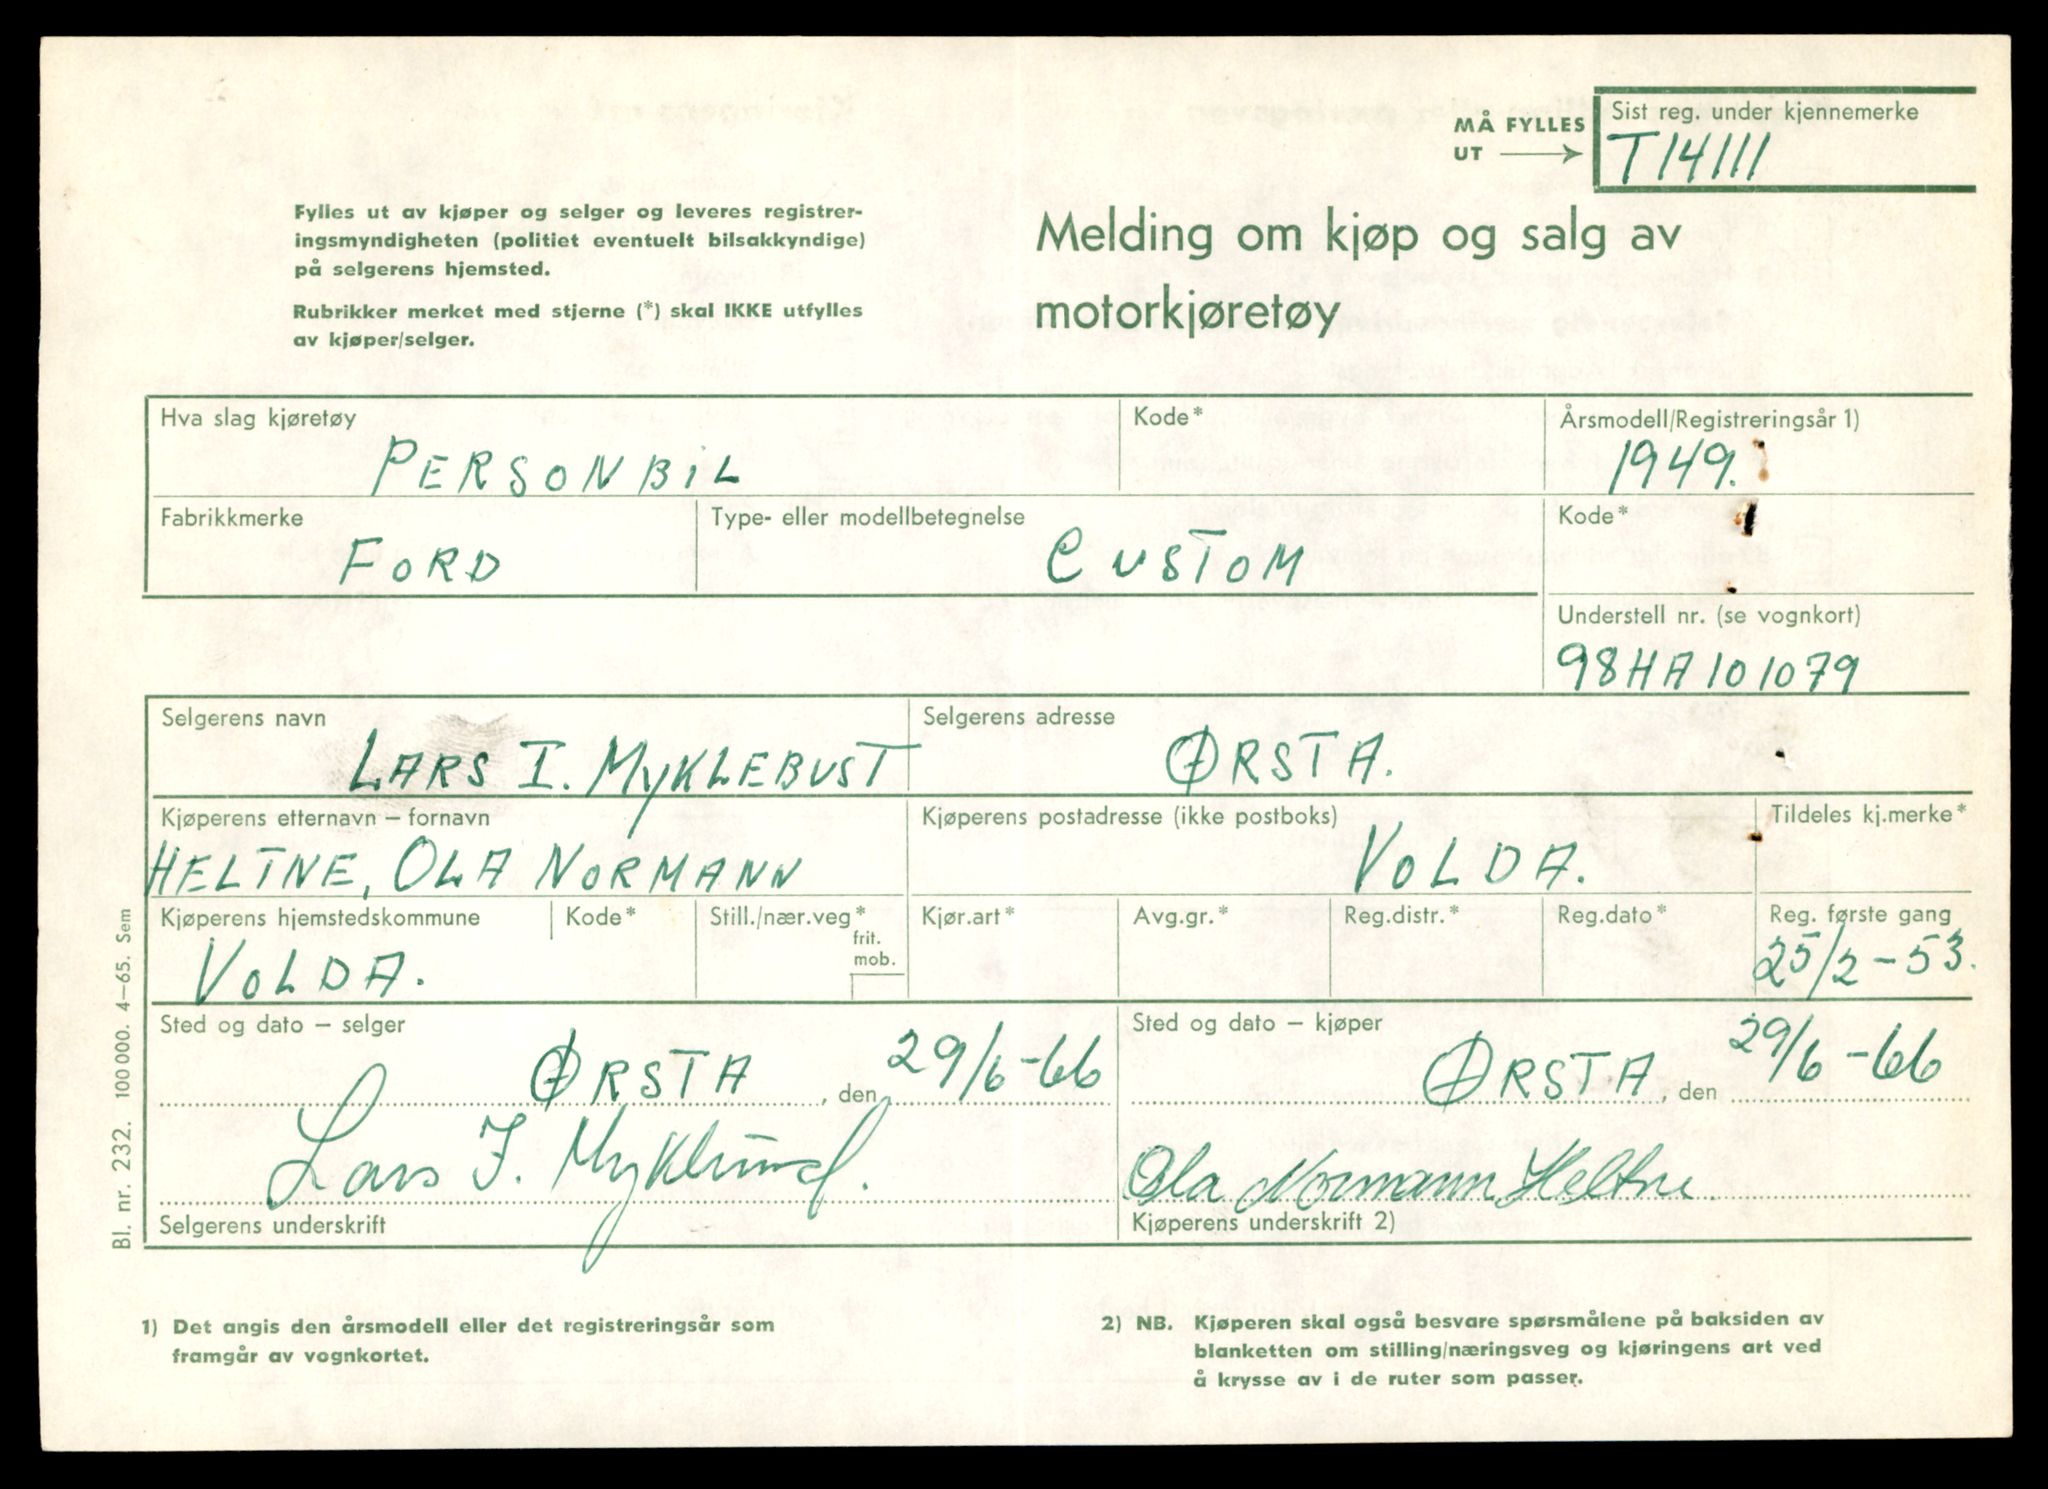 MÅ FYLLES
UT
Sist reg. under kjennemerke
T 14111
Fylles ut av kjøper og selger og leveres registrer-
ingsmyndigheten (politiet eventuelt bilsakkyndige)
på selgerens hjemsted.
Rubrikker merket med stjerne (*) skal IKKE utfylles
av kjøper/selger.
Melding om kjøp og salg av
motorkjøretøy
Hva slag kjøretøy
PERSONBIL
Kode*
Årsmodell/Registreringsår 1)
1949.
Fabrikkmerke
FORD
Type- eller modellbetegnelse
CUSTOM
Kode*
Understell nr. (se vognkort)
98HA101079
Selgerens navn
LARS I. MYKLEBUST
Selgerens adresse
ØRSTA.
Kjøperens etternavn – fornavn
HELTNE, OLA NORMANN
Kjøperens postadresse (ikke postboks)
VOLDA.
Tildeles kj.merke*
Kjøperens hjemstedskommune
VOLDA.
Kode*
Still./nær.veg*
frit.
mob.
Kjør.art*
Avg.gr.*
Reg.distr.*
Reg.dato*
Reg. første gang
25/2-53.
Sted og dato – selger
ØRSTA, den 29/6-66
Lars I. Myklebust.
Selgerens underskrift
Sted og dato – kjøper
ØRSTA, den 29/6-66
Ola Normann Heltne.
Kjøperens underskrift 2)
Bl. nr. 232. 100 000. 4–65. Sem
1) Det angis den årsmodell eller det registreringsår som
framgår av vognkortet.
2) NB. Kjøperen skal også besvare spørsmålene på baksiden av
blanketten om stilling/næringsveg og kjøringens art ved
å krysse av i de ruter som passer.